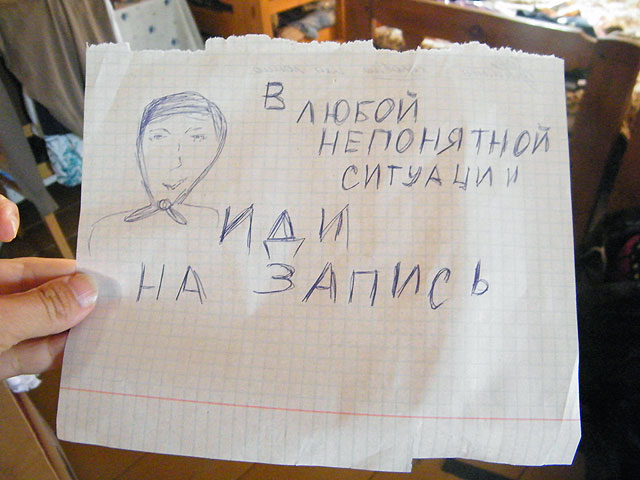 В ЛЮБОЙ
НЕПОНЯТНОЙ
СИТУАЦИИ
ИДИ
НА ЗАПИСЬ